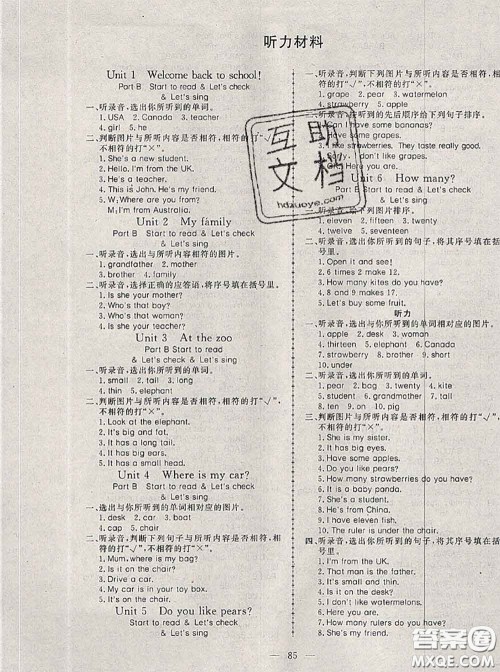 听力材料
Unit 1 Welcome back to school!
Part B Start to read & Let's check
& Let's sing
一、听录音,选出你所听到的单词。
1. USA 2. Canada 3. teacher
4. girl 5. he
二、判断图片与所听内容是否相符,相符的打“√”,
不相符的打“×”。
1. She's a new student.
2. Hello, I'm from the UK.
3. He's a teacher.
4. This is John. He's my friend.
5. W: Where are you from?
M: I'm from Australia.
Unit 2 My family
Part B Start to read & Let's check
& Let's sing
一、听录音,选出与所听内容相符的图片。
1. grandfather 2. mother
3. brother 4. family
二、听录音,选择正确的应答语,将序号填在括号里。
1. Is she your mother?
2. Who's that boy?
3. Is he your brother?
Unit 3 At the zoo
Part B Start to read
& Let's check & Let's sing
一、听录音,选出你所听到的单词。
1. small 2. tall
3. long 4. giraffe
二、判断图片与所听内容是否相符,相符的打“√”,
不相符的打“×”。
1. Look at the elephant.
2. It's an elephant.
3. It has a long tail.
4. It has big ears.
5. It has a small head.
Unit 4 Where is my car?
Part B Start to read & Let's check
& Let's sing
一、选出与你所听到的单词相对应的图片。
1. desk 2. car 3. boat
4. cap 5. chair
二、听录音,判断下列句子与所听内容是否相符,相
符的打“√”,不相符的打“×”。
1. Mum, where is my bag?
2. Is it on the chair?
3. Drive a car.
4. My car is in your toy box.
5. It's on the desk.
Unit 5 Do you like pears?
Part B Start to read & Let's check
& Let's sing
一、听录音,判断下列图片与所听内容是否相符,相
符的打“√”,不相符的打“×”。
1. grape 2. pear 3. watermelon
4. strawberry 5. apple
二、按听到的先后顺序给下列句子排序。
1. Can I have some bananas?
2. Have some grapes.
3. I like strawberries. They taste really good.
don't like grapes.
Here you are.
Unit 6 How many?
Part B Start to read & Let's check
& Let's sing
给下列图片排序。
1. eleven 2. fifteen 3. twenty
4. twelve 5. nineteen
二、听录音,选出你所听到的句子,将其序号填入括
号里。
1. Open it and see!
2. 6 times 2 make 12.
3. How many kites do you have?
4. How many birds?
5. Let's buy some fruit.
听力
一、听录音,选出与你所听到的单词相对应的图片。
1. panda 2. apple 3. car
4. fifteen 5. elephant 6. Canada
7. strawberry 8. father
二、听录音,选出你所听到的单词。
1. pear 2. bag 3. twenty 4. map
5. small 6. brother 7. desk
8. tall 9. on 10. pen
三、听录音,判断图片与所听内容是否相符,相符的
打“√”,不相符的打“×”。
1. She is my sister.
2. It is an elephant.
3. Have some apples.
4. Do you like pears?
5. It is a baby panda.
6. She's a student.
7. It is on the chair.
8. It has a long nose.
9. I have eleven fish.
10. The ruler is under the chair.
四、听录音,选出你所听到的句子,将其序号填在括
号里。
1. I'm from the UK.
2. He is my father.
3. It's small and thin.
4. Is it on your desk?
5. Do you like grapes?
6. How many rulers do you have?
7. Is it in your hand?
8. I like apples.
85
互助
文档
hdzuoye.com
答案圈
MXQE.COM